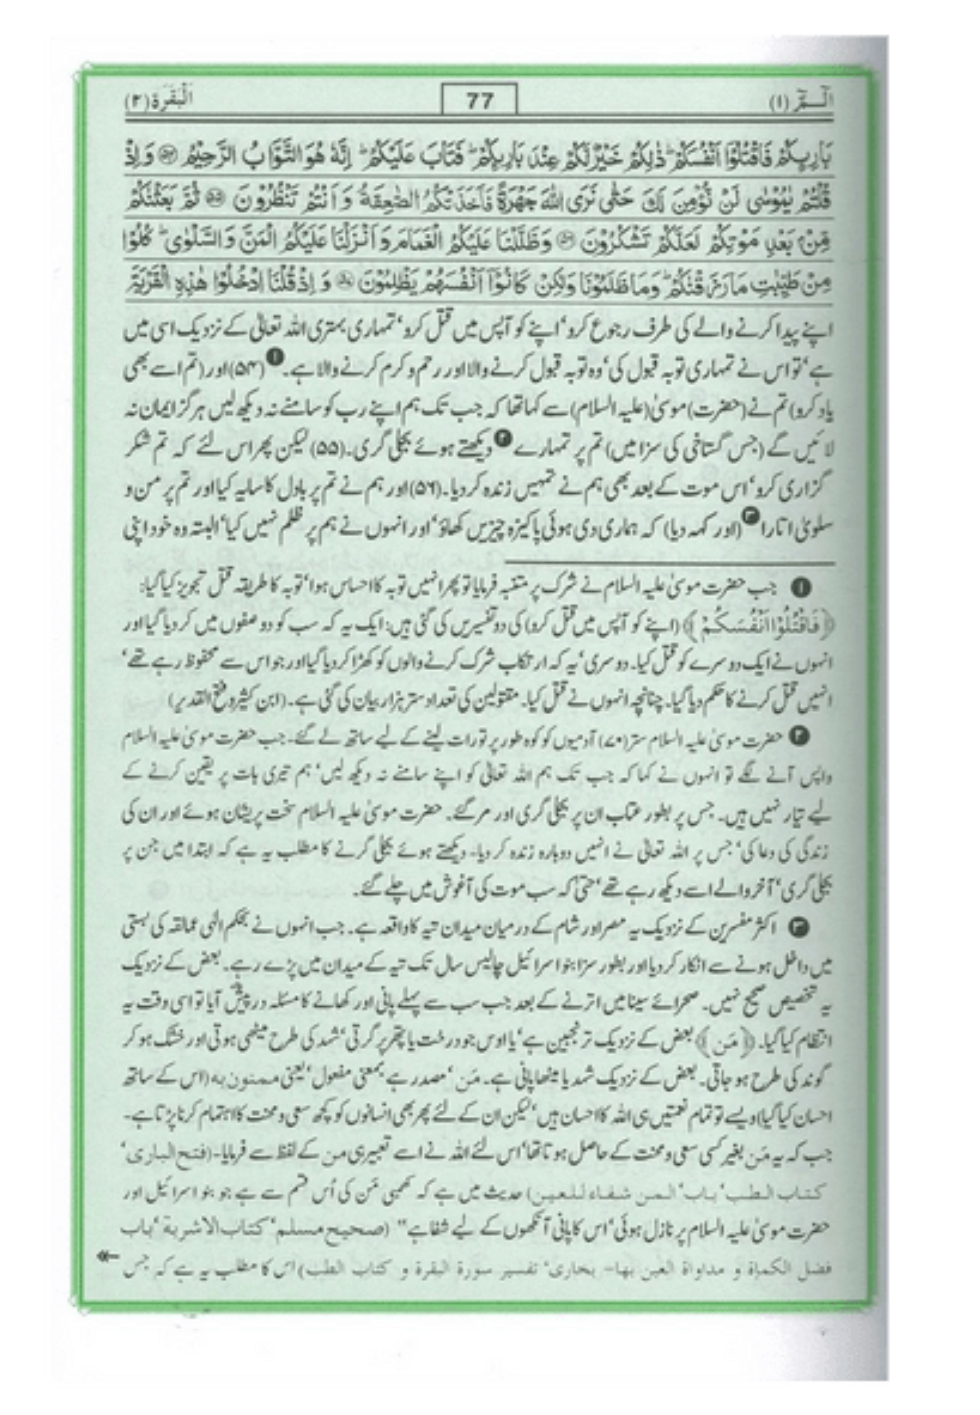 الٓـمّٓ (۱)
77
اَلْبَقَرَة (۲)
بَارِىِٕكُمْ فَاقْتُلُوْۤا اَنْفُسَكُمْ ؕ ذٰلِكُمْ خَيْرٌ لَّكُمْ عِنْدَ بَارِىِٕكُمْ ؕ فَتَابَ عَلَيْكُمْ ؕ اِنَّهٗ هُوَ التَّوَّابُ الرَّحِيْمُ ۝۵۴ وَ اِذْ
قُلْتُمْ يٰمُوْسٰى لَنْ نُّؤْمِنَ لَكَ حَتّٰى نَرَى اللّٰهَ جَهْرَةً فَاَخَذَتْكُمُ الصّٰعِقَةُ وَ اَنْتُمْ تَنْظُرُوْنَ ۝۵۵ ثُمَّ بَعَثْنٰكُمْ
مِّنْۢ بَعْدِ مَوْتِكُمْ لَعَلَّكُمْ تَشْكُرُوْنَ ۝۵۶ وَ ظَلَّلْنَا عَلَيْكُمُ الْغَمَامَ وَ اَنْزَلْنَا عَلَيْكُمُ الْمَنَّ وَ السَّلْوٰى ؕ كُلُوْا
مِنْ طَيِّبٰتِ مَا رَزَقْنٰكُمْ ؕ وَ مَا ظَلَمُوْنَا وَ لٰكِنْ كَانُوْۤا اَنْفُسَهُمْ يَظْلِمُوْنَ ۝۵۷ وَ اِذْ قُلْنَا ادْخُلُوْا هٰذِهِ الْقَرْيَةَ
اپنے پیدا کرنے والے کی طرف رجوع کرو‘ اپنے کو آپس میں قتل کرو‘ تمہاری بہتری اللہ تعالیٰ کے نزدیک اسی میں
ہے‘ تو اس نے تمہاری توبہ قبول کی‘ وہ توبہ قبول کرنے والا اور رحم و کرم کرنے والا ہے۔ ❶ (۵۴) اور (تم اسے بھی
یاد کرو) تم نے (حضرت) موسیٰ (علیہ السلام) سے کہا تھا کہ جب تک ہم اپنے رب کو سامنے نہ دیکھ لیں ہرگز ایمان نہ
لائیں گے (جس گستاخی کی سزا میں) تم پر تمہارے ❷ دیکھتے ہوئے بجلی گری۔ (۵۵) لیکن پھر اس لئے کہ تم شکر
گزاری کرو‘ اس موت کے بعد بھی ہم نے تمہیں زندہ کر دیا۔ (۵۶) اور ہم نے تم پر بادل کا سایہ کیا اور تم پر من و
سلویٰ اتارا ❸ (اور کہہ دیا) کہ ہماری دی ہوئی پاکیزہ چیزیں کھاؤ‘ اور انہوں نے ہم پر ظلم نہیں کیا‘ البتہ وہ خود اپنی
❶ جب حضرت موسیٰ علیہ السلام نے شرک پر متنبہ فرمایا تو پھر انہیں توبہ کا احساس ہوا‘ توبہ کا طریقہ قتل تجویز کیا گیا:
﴿فَاقْتُلُوْۤا اَنْفُسَكُمْ﴾ (اپنے کو آپس میں قتل کرو) کی دو تفسیریں کی گئی ہیں: ایک یہ کہ سب کو دو صفوں میں کر دیا گیا اور
انہوں نے ایک دوسرے کو قتل کیا۔ دوسری‘ یہ کہ ارتکاب شرک کرنے والوں کو کھڑا کر دیا گیا اور جو اس سے محفوظ رہے تھے‘
انہیں قتل کرنے کا حکم دیا گیا۔ چنانچہ انہوں نے قتل کیا۔ مقتولین کی تعداد ستر ہزار بیان کی گئی ہے۔ (ابن کثیر و فتح القدیر)
❷ حضرت موسیٰ علیہ السلام ستر (۷۰) آدمیوں کو کوہ طور پر تورات لینے کے لیے ساتھ لے گئے۔ جب حضرت موسیٰ علیہ السلام
واپس آنے لگے تو انہوں نے کہا کہ جب تک ہم اللہ تعالیٰ کو اپنے سامنے نہ دیکھ لیں‘ ہم تیری بات پر یقین کرنے کے
لیے تیار نہیں ہیں۔ جس پر بطور عتاب ان پر بجلی گری اور مر گئے۔ حضرت موسیٰ علیہ السلام سخت پریشان ہوئے اور ان کی
زندگی کی دعا کی‘ جس پر اللہ تعالیٰ نے انہیں دوبارہ زندہ کر دیا۔ دیکھتے ہوئے بجلی گرنے کا مطلب یہ ہے کہ ابتدا میں جن پر
بجلی گری‘ آخر والے اسے دیکھ رہے تھے‘ حتیٰ کہ سب موت کی آغوش میں چلے گئے۔
❸ اکثر مفسرین کے نزدیک یہ مصر اور شام کے درمیان میدان تیہ کا واقعہ ہے۔ جب انہوں نے بحکم الٰہی عمالقہ کی بستی
میں داخل ہونے سے انکار کر دیا اور بطور سزا بنو اسرائیل چالیس سال تک تیہ کے میدان میں پڑے رہے۔ بعض کے نزدیک
یہ تخصیص صحیح نہیں۔ صحرائے سینا میں اترنے کے بعد جب سب سے پہلے پانی اور کھانے کا مسئلہ درپیش آیا تو اسی وقت یہ
انتظام کیا گیا۔ ﴿مَن﴾ بعض کے نزدیک ترنجبین ہے‘ یا اوس جو درخت یا پتھر پر گرتی‘ شہد کی طرح میٹھی ہوتی اور خشک ہو کر
گوند کی طرح ہو جاتی۔ بعض کے نزدیک شہد یا میٹھا پانی ہے۔ مَن‘ مصدر ہے بمعنی مفعول‘ یعنی ممنون بہ (اس کے ساتھ
احسان کیا گیا) ویسے تو تمام نعمتیں ہی اللہ کا احسان ہیں‘ لیکن ان کے لئے پھر بھی انسانوں کو کچھ سعی و محنت کا اہتمام کرنا پڑتا ہے۔
جب کہ یہ مَن بغیر کسی سعی و محنت کے حاصل ہوتا تھا‘ اس لئے اللہ نے اسے تعبیر ہی من کے لفظ سے فرمایا۔ (فتح الباری‘
کتاب الطب‘ باب‘ المن شفاء للعین) حدیث میں ہے کہ کھمبی مَن کی اُس قسم سے ہے جو بنو اسرائیل اور
حضرت موسیٰ علیہ السلام پر نازل ہوئی‘ اس کا پانی آنکھوں کے لیے شفا ہے" (صحیح مسلم‘ کتاب الاشربة‘ باب
فضل الکمأة و مداواة العین بها۔ بخاری‘ تفسیر سورة البقرة و کتاب الطب) اس کا مطلب یہ ہے کہ جس